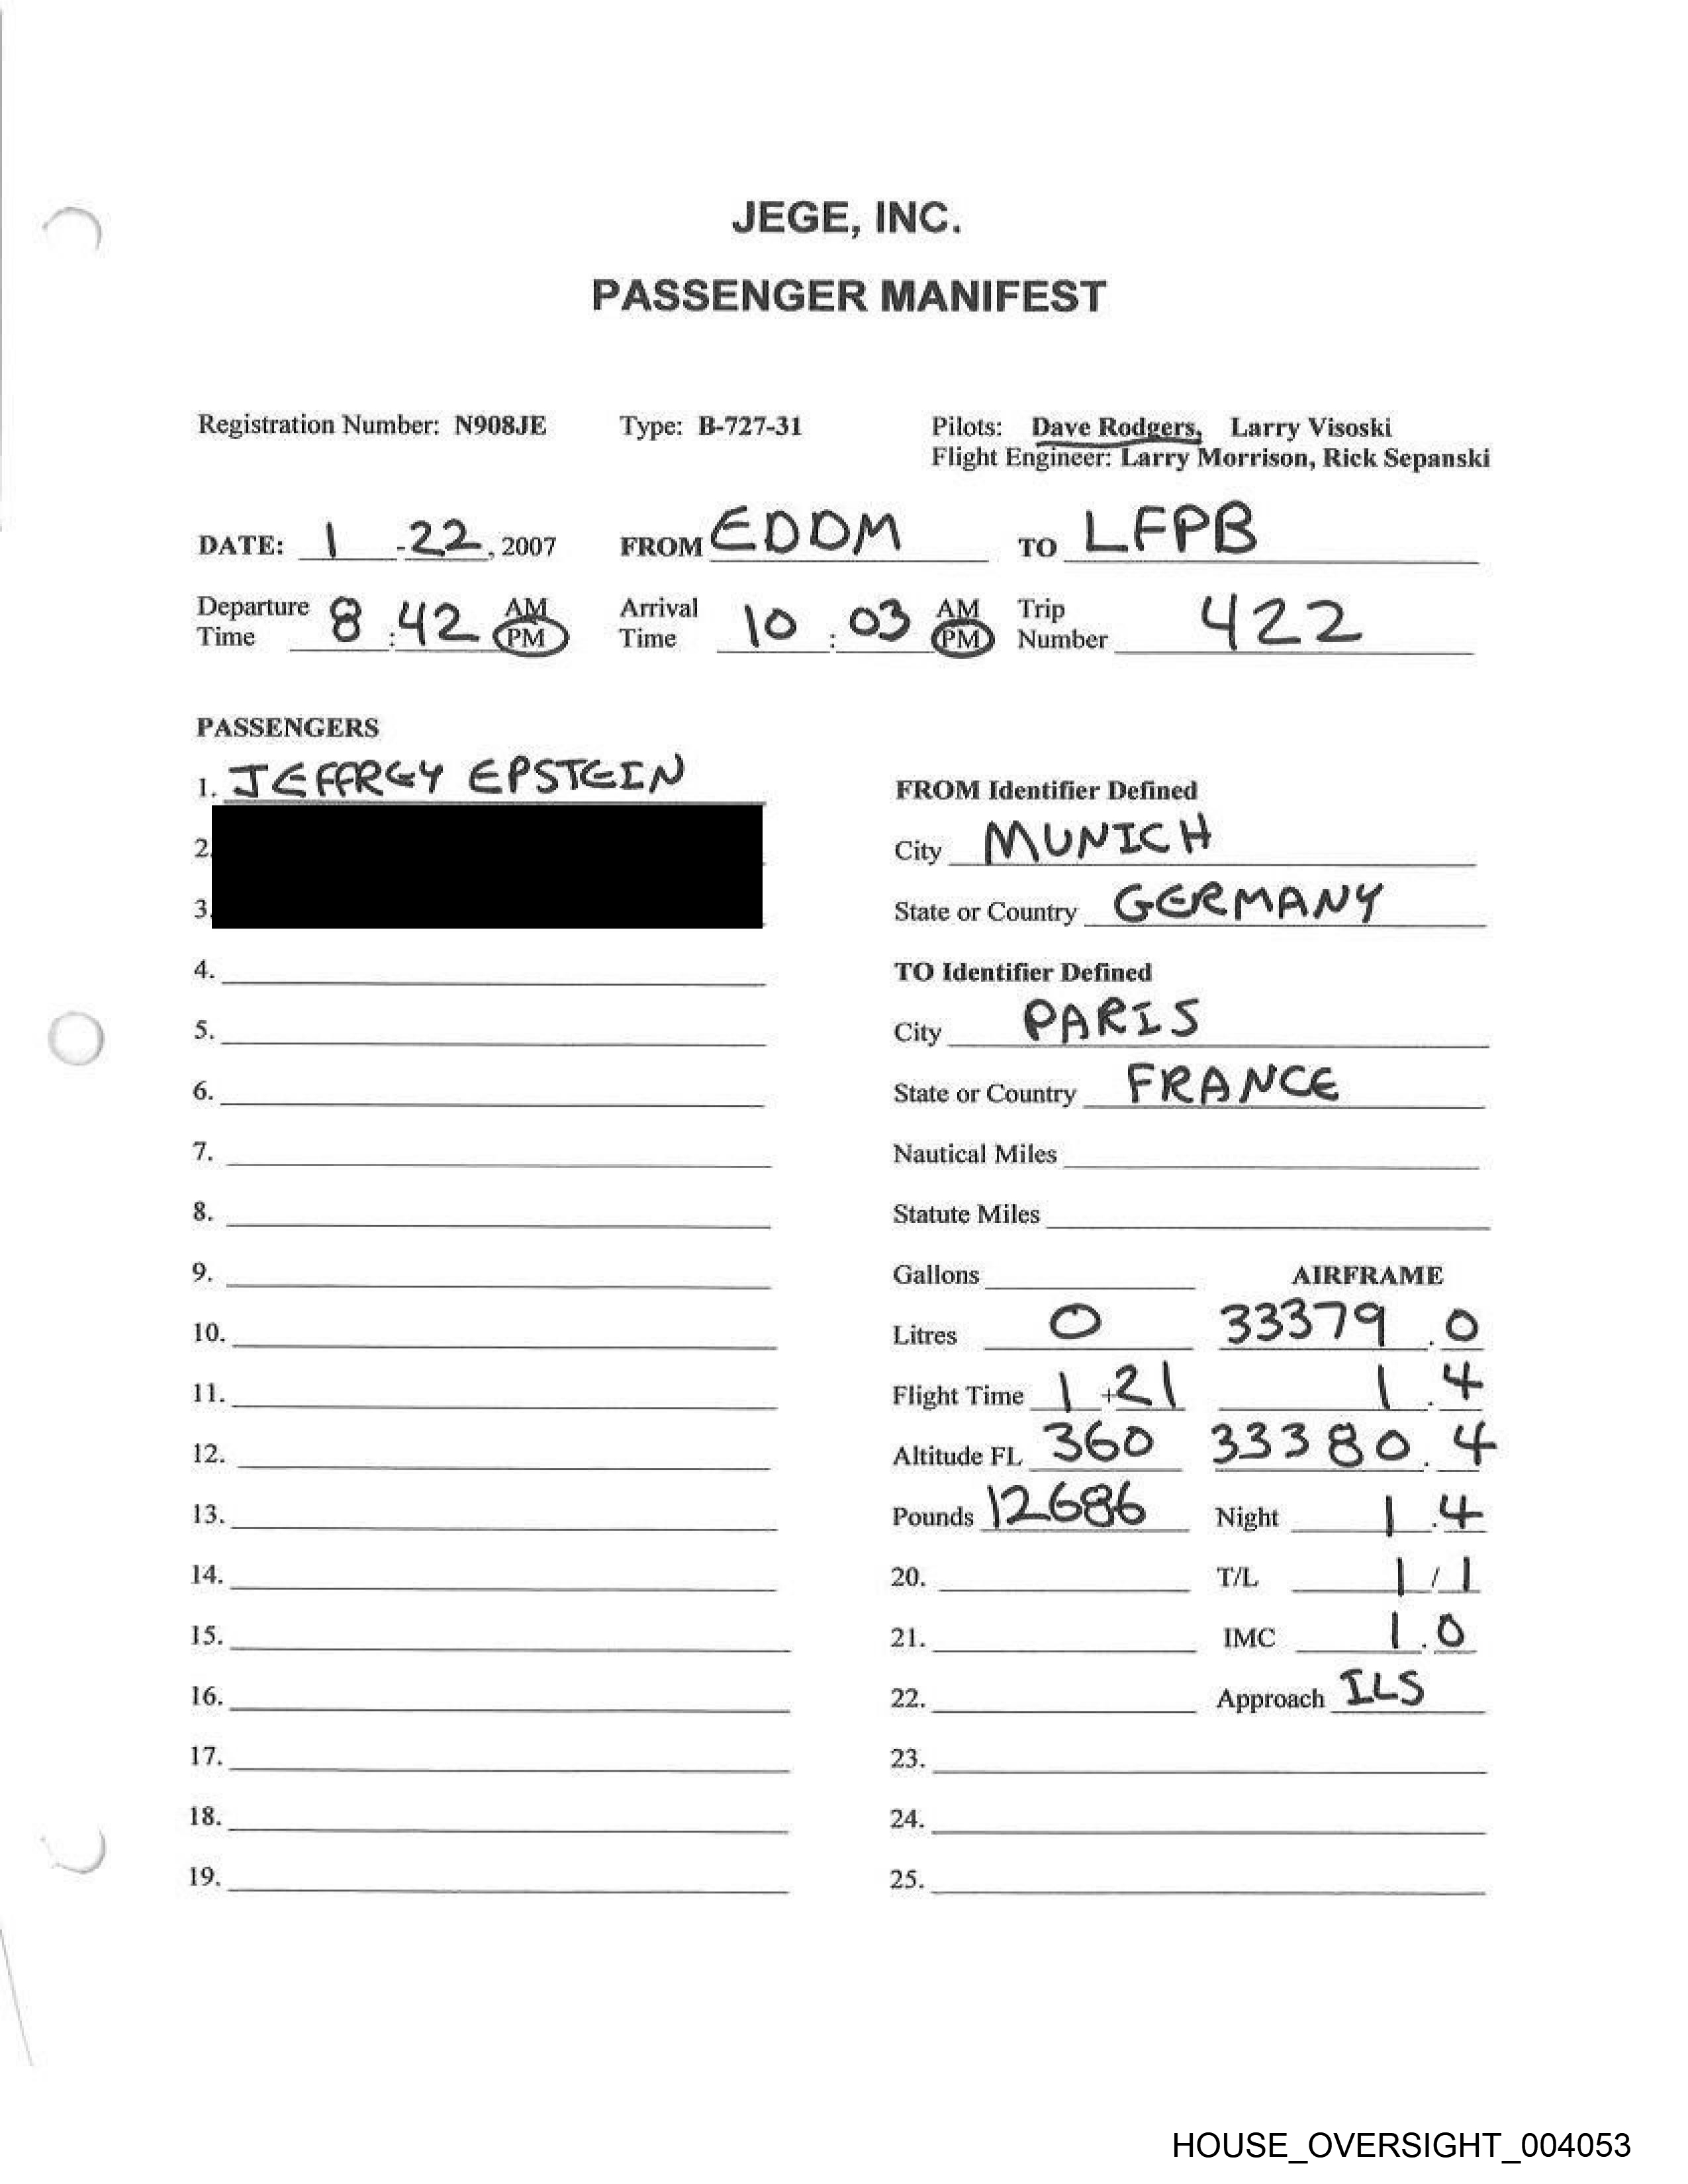 JEGE, INC.
PASSENGER MANIFEST
Registration Number: N908JE Type: B-727-31 Pilots: Dave Rodgers, Larry Visoski
Flight Engineer: Larry Morrison, Rick Sepanski
DATE: 1 - 22, 2007 FROM EDDM TO LFPB
Departure Time 8 : 42 AM PM Arrival Time 10 : 03 AM PM Trip Number 422
PASSENGERS
1. JEFFREY EPSTEIN
2.
3.
4.
5.
6.
7.
8.
9.
10.
11.
12.
13.
14.
15.
16.
17.
18.
19.
FROM Identifier Defined
City MUNICH
State or Country GERMANY
TO Identifier Defined
City PARIS
State or Country FRANCE
Nautical Miles
Statute Miles
Gallons AIRFRAME
Litres 0 33379 . 0
Flight Time 1 + 21 1 . 4
Altitude FL 360 33380 . 4
Pounds 12686 Night 1 . 4
20. T/L 1 / 1
21. IMC 1 . 0
22. Approach ILS
23.
24.
25.
HOUSE_OVERSIGHT_004053